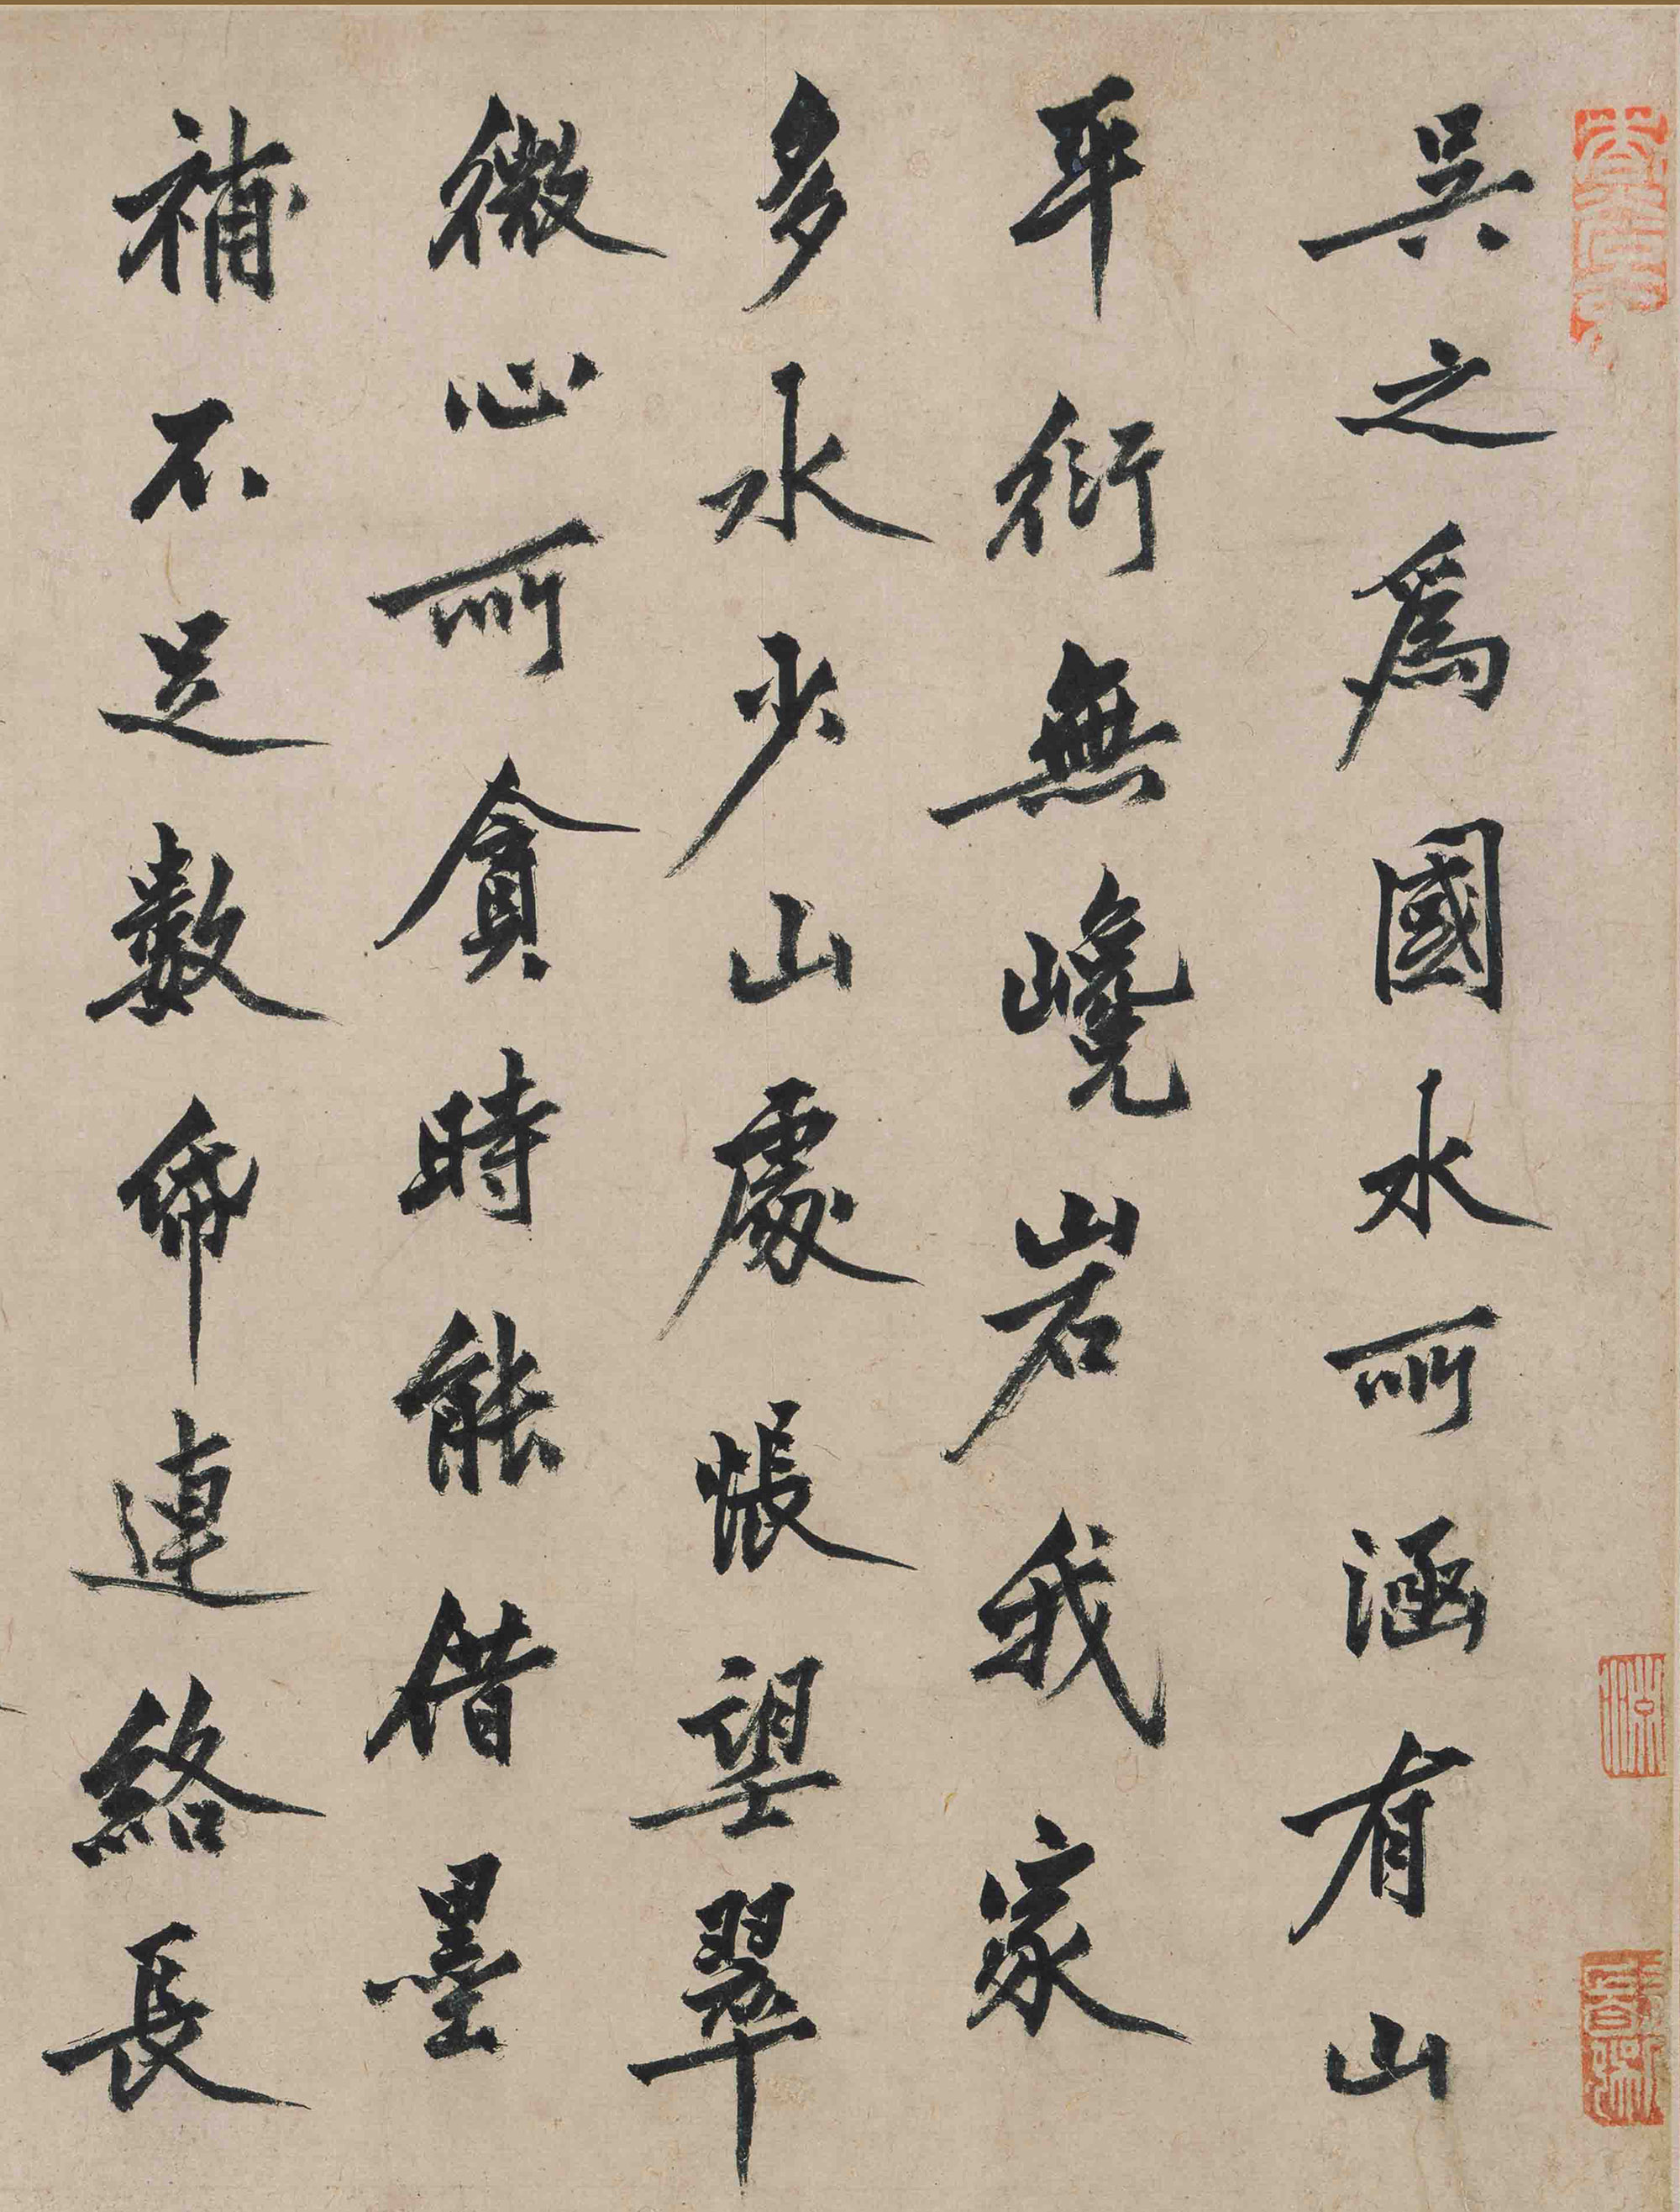 吳之爲國水所涵有山
平衍無巉岩我家
多水少山處悵望翠
微心所貪時能借墨
補不足數紙連絡長